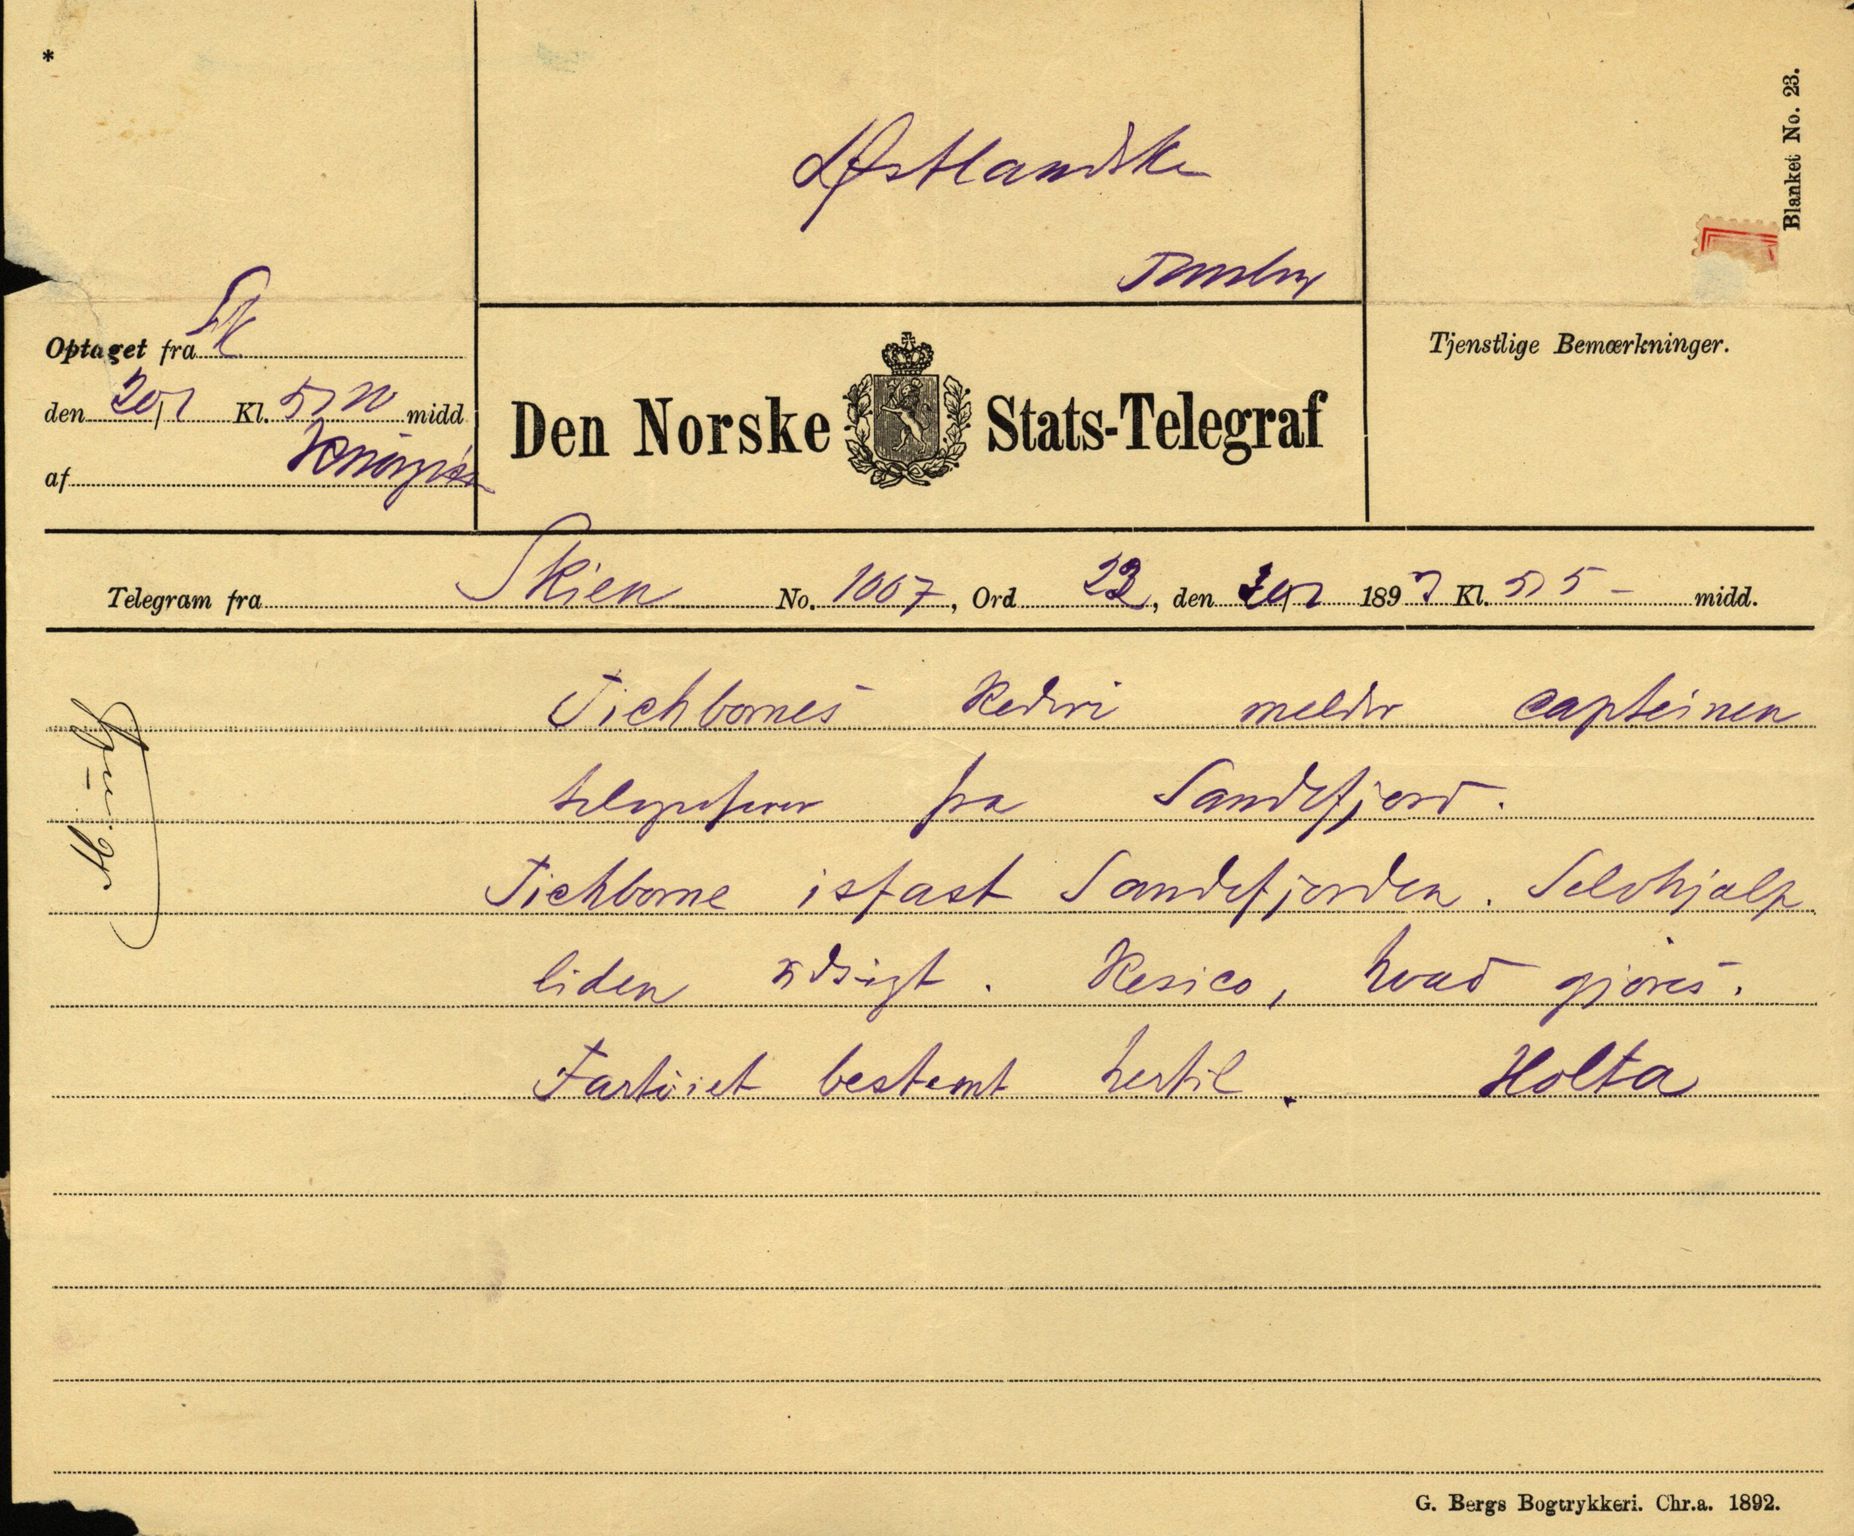 *
Østlandske
Tønsberg
Blanket No. 23.
Optaget fra Sk
den 20/2 Kl. 5/20 midd
af
Den Norske Stats-Telegraf
Tjenstlige Bemærkninger.
Telegram fra Skien No. 1007, Ord 22, den 20/2 1893 Kl. 5/5 - midd.
Tichbornes Rederi melder capteinen
telegraferer fra Sandefjord.
Tichborne isfast Sandefjorden. Selvhjælp
liden udsigt. Resico, hvad gjøres.
Fartøiet bestemt hertil. Holta
G. Bergs Bogtrykkeri. Chr.a. 1892.